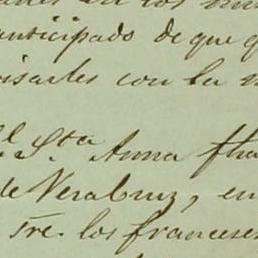 en los
anticipado de que q
isarles con la
l Sta Anna
de Veracruz, en
Tre. los franceses